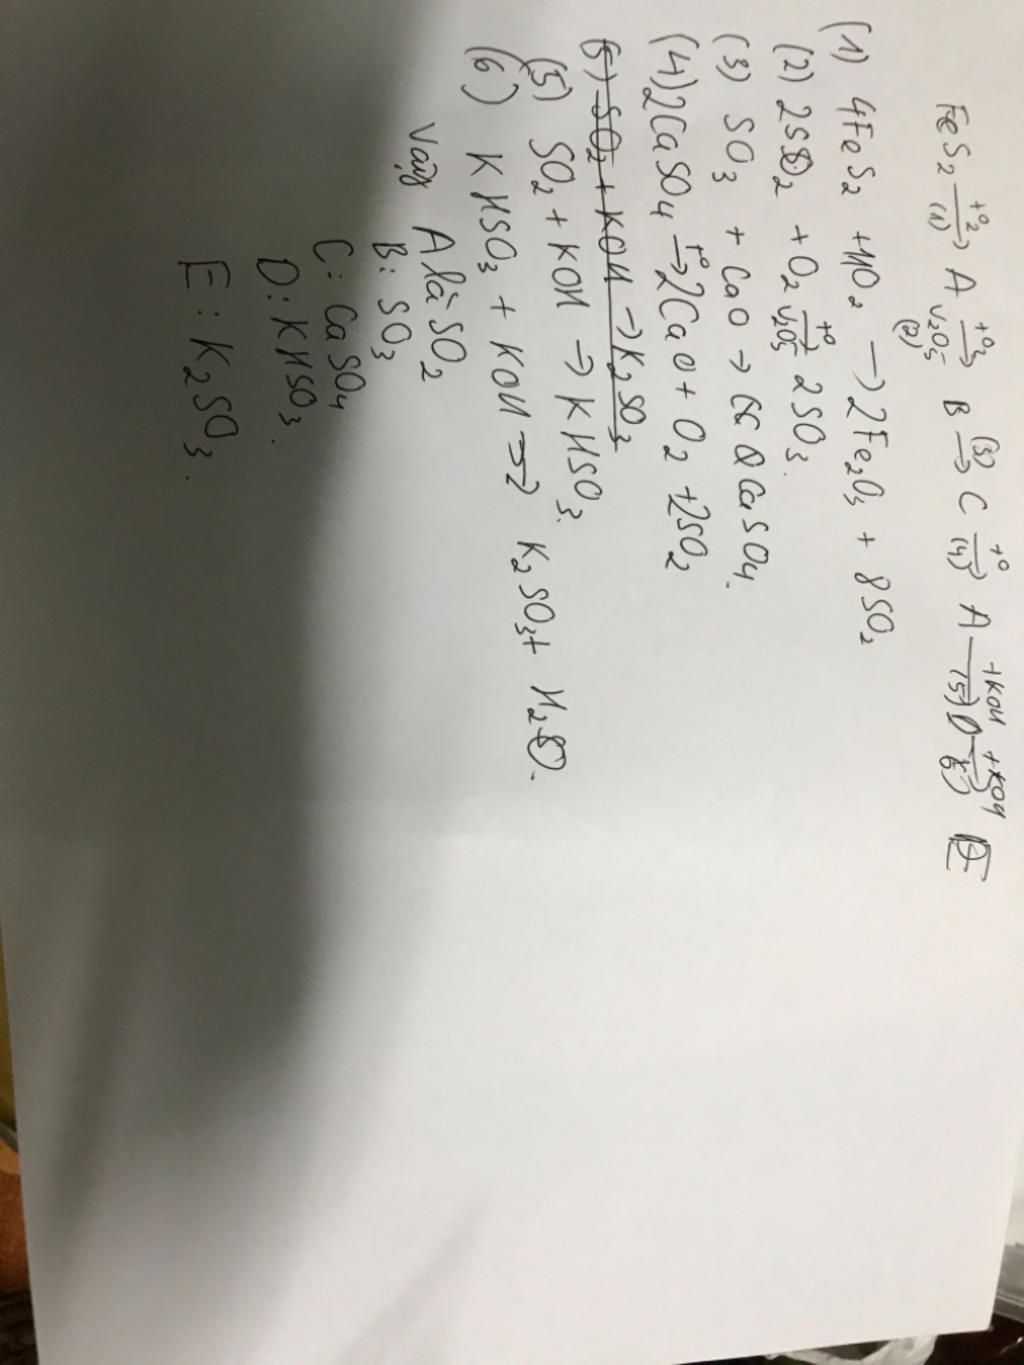 FeS2 +O2 (1) → A +O2 V2O5 (2) → B (3) → C t° (4) → A +KOH (5) → D +KOH (6) → E
(1) 4FeS2 + 11O2 → 2Fe2O3 + 8SO2
(2) 2SO2 + O2 t° V2O5 → 2SO3.
(3) SO3 + CaO → CaSO4.
(4) 2CaSO4 t° → 2CaO + O2 + 2SO2
(5) SO2 + KOH → K2SO3
(5) SO2 + KOH → KHSO3.
(6) KHSO3 + KOH → K2SO3 + H2O.
Vậy A là SO2
B: SO3
C: CaSO4
D: KHSO3.
E: K2SO3.